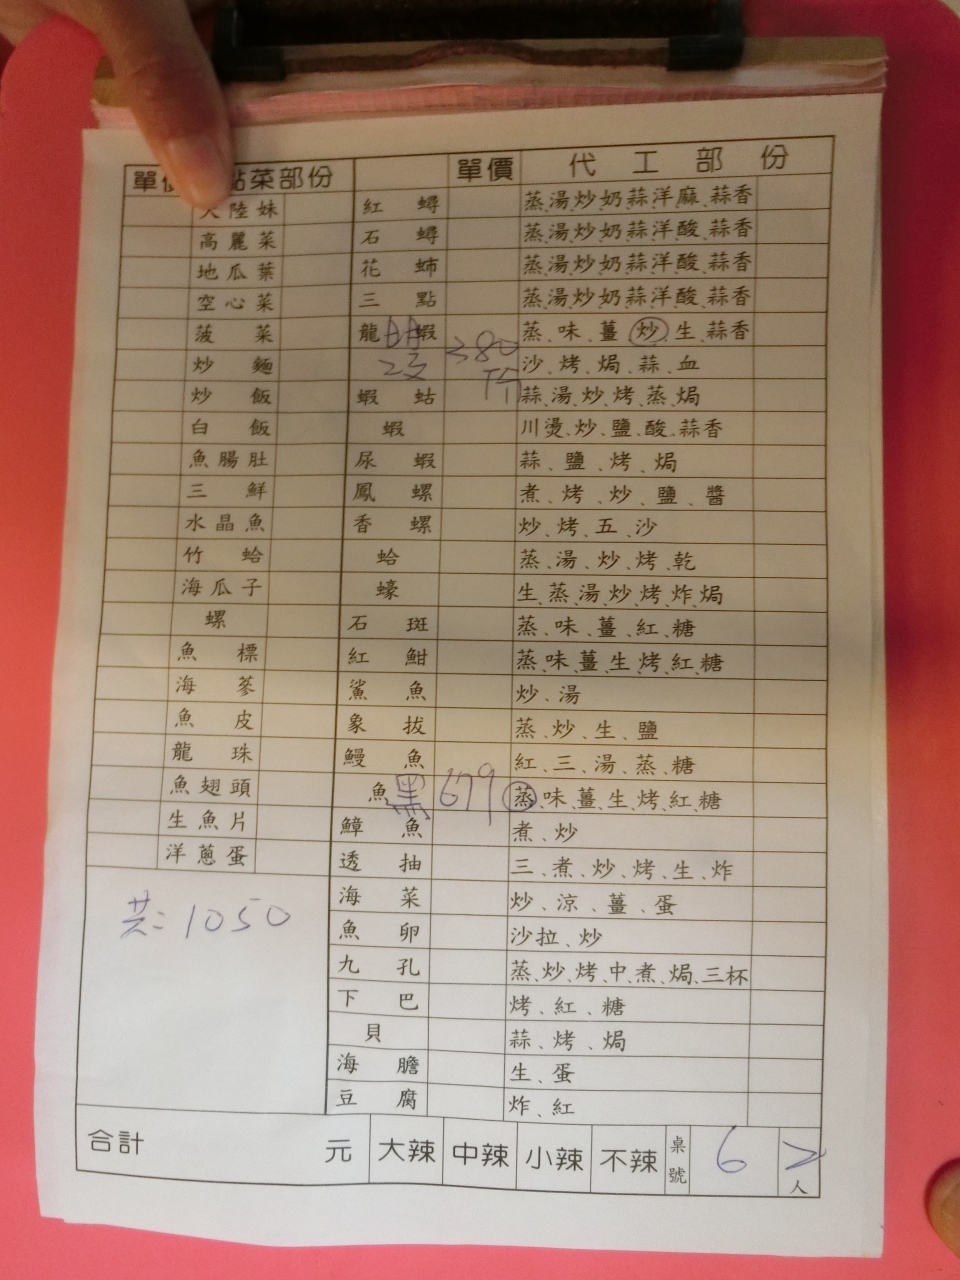 單 點菜部份 單價 代工部份
大陸妹 紅蟳 蒸、湯、炒、奶、蒜、洋、麻、蒜香
高麗菜 石蟳 蒸、湯、炒、奶、蒜、洋、酸、蒜香
地瓜葉 花蛳 蒸、湯、炒、奶、蒜、洋、酸、蒜香
空心菜 三點 蒸、湯、炒、奶、蒜、洋、酸、蒜香
菠菜 龍蝦 380 蒸、味、薑、炒、生、蒜香
炒麵 沙、烤、焗、蒜、血
炒飯 蝦蛄 蒜、湯、炒、烤、蒸、焗
白飯 蝦 川燙、炒、鹽、酸、蒜香
魚腸肚 尿蝦 蒜、鹽、烤、焗
三鮮 鳳螺 煮、烤、炒、鹽、醬
水晶魚 香螺 炒、烤、五、沙
竹蛤 蛤 蒸、湯、炒、烤、乾
海瓜子 蠔 生、蒸、湯、炒、烤、炸、焗
螺 石斑 蒸、味、薑、紅、糖
魚標 紅魽 蒸、味、薑、生、烤、紅、糖
海蔘 鯊魚 炒、湯
魚皮 象拔 蒸、炒、生、鹽
龍珠 鰻魚 紅、三、湯、蒸、糖
魚翅頭 魚 黑 679 蒸、味、薑、生、烤、紅、糖
生魚片 鱆魚 煮、炒
洋蔥蛋 透抽 三、煮、炒、烤、生、炸
海菜 炒、涼、薑、蛋
共=1050 魚卵 沙拉、炒
九孔 蒸、炒、烤、中、煮、焗、三杯
下巴 烤、紅、糖
貝 蒜、烤、焗
海膽 生、蛋
豆腐 炸、紅
合計 元 大辣 中辣 小辣 不辣 桌號 6 2人